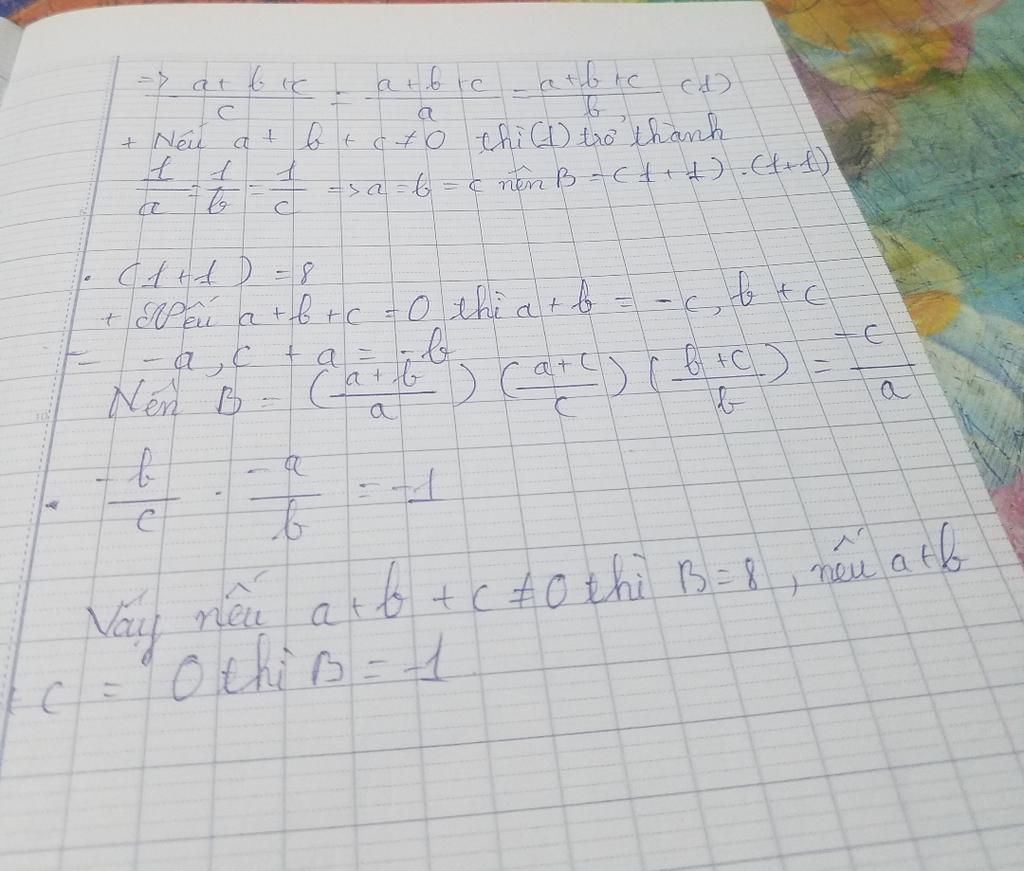 => a+b+c/c = a+b+c/a = a+b+c/b (1)
+ Nếu a+b+c≠0 thì (1) trở thành
1/a = 1/b = 1/c => a=b=c nên B=(1+1).(1+1)
.(1+1)=8
+ Nếu a+b+c=0 thì a+b=-c, b+c
= -a, c+a=-b
Nên B=(a+b/a)(a+c/c)(b+c/b)=-c/a
. -b/c . -a/b = -1
Vậy nếu a+b+c≠0 thì B=8, nếu a+b
+c=0 thì B=-1